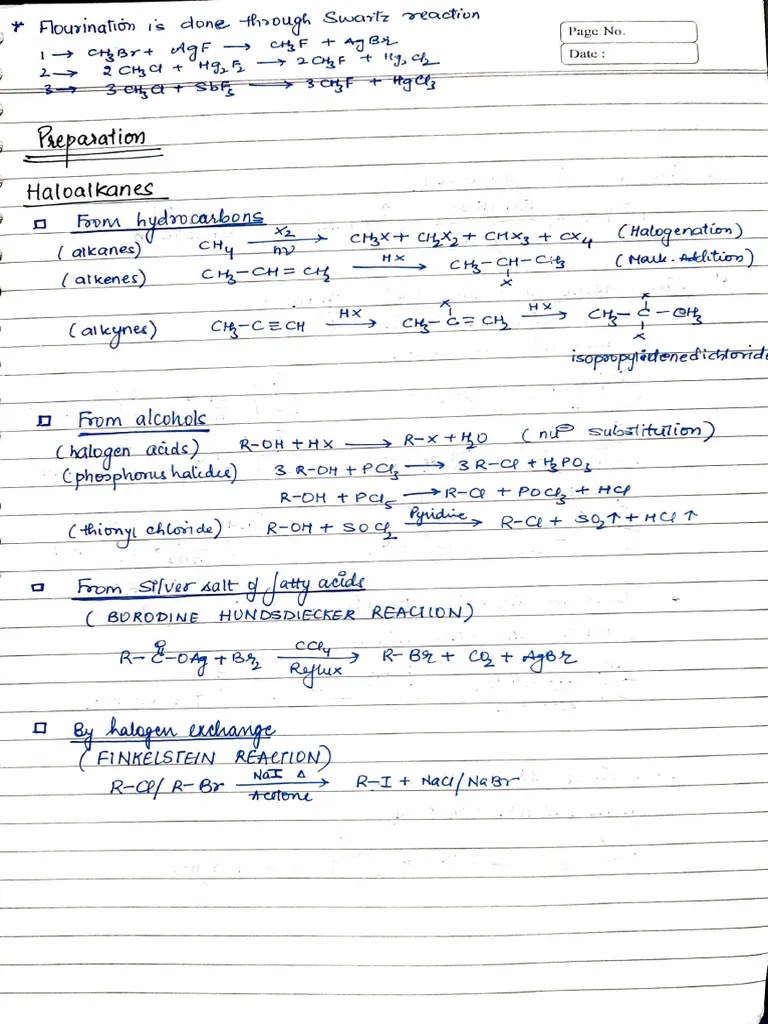 * Flourination is done through Swartz reaction
Page No.
Date :
1 → CH₃Br + AgF → CH₃F + AgBr
2 → 2CH₃Cl + Hg₂F₂ → 2CH₃F + Hg₂Cl₂
3 → 3CH₃Cl + SbF₃ → 3CH₃F + HgCl₃
Preparation
Haloalkanes
□ From hydrocarbons
(alkanes) CH₄ —X₂/hν→ CH₃X + CH₂X₂ + CHX₃ + CX₄ (Halogenation)
(alkenes) CH₃-CH=CH₂ —HX→ CH₃-CH-CH₃ (Mark. Addition)
X
X X
(alkynes) CH₃-C≡CH —HX→ CH₃-C=CH₂ —HX→ CH₃-C-CH₃
X
isopropylidenedichloride
□ From alcohols
(halogen acids) R-OH + HX → R-X + H₂O (nuᵖ substitution)
(phosphorus halides) 3 R-OH + PCl₃ → 3 R-Cl + H₃PO₃
R-OH + PCl₅ → R-Cl + POCl₃ + HCl
(thionyl chloride) R-OH + SOCl₂ —Pyridine→ R-Cl + SO₂↑ + HCl↑
□ From silver salt of fatty acids
(BORODINE HUNDSDIECKER REACTION)
O
R-C-OAg + Br₂ —CCl₄/Reflux→ R-Br + CO₂ + AgBr
□ By halogen exchange
(FINKELSTEIN REACTION)
R-Cl/R-Br —NaI Δ/Acetone→ R-I + NaCl/NaBr